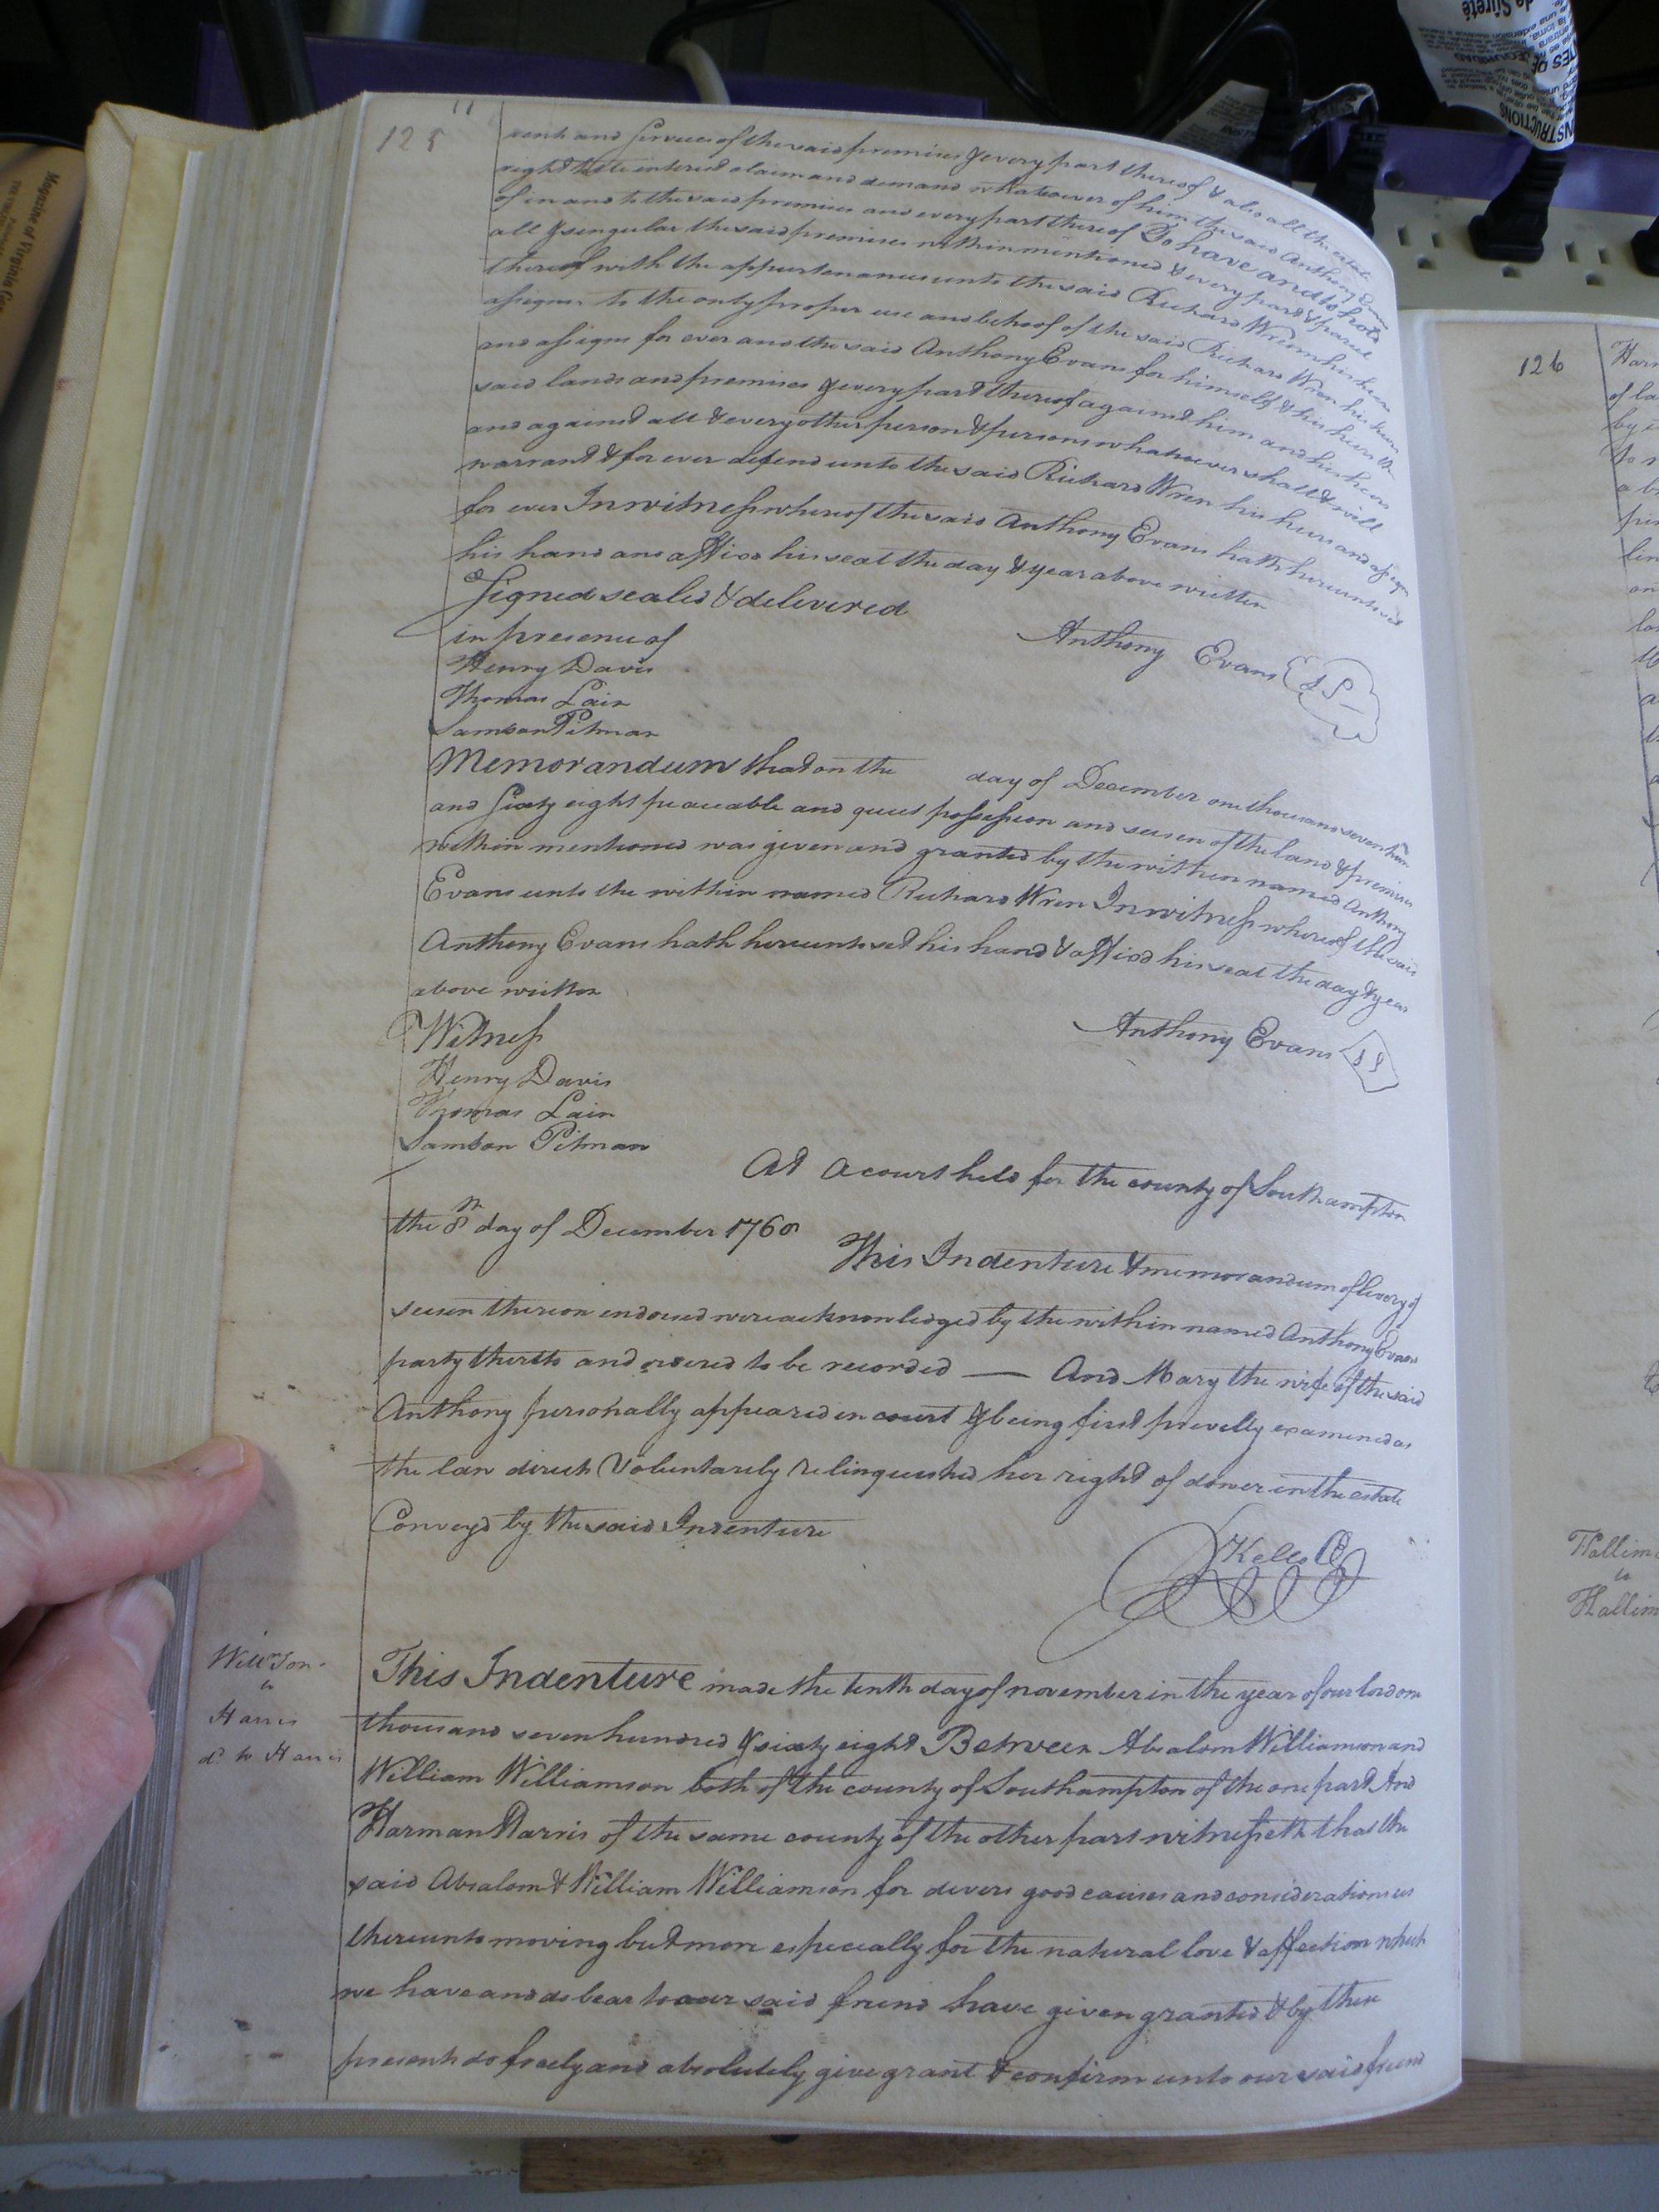 125
rents and services of the said premises & every part thereof & also all the estate
right title interest claim and demand whatsoever of him the said Anthony Evans
of in and to the said premises and every part thereof To have and to hold
all & singular the said premises within mentioned & every part & parcel
thereof with the appurtenances unto the said Richard Wren his heirs
assigns to the only proper use and behoof of the said Richard Wren his heirs
and assigns for ever and the said Anthony Evans for himself & his heirs the
said lands and premises & every part thereof against him and his heirs
and against all & every other person & persons whatsoever shall & will
warrant & for ever defend unto the said Richard Wren his heirs and assigns
for ever In witness whereof the said Anthony Evans hath hereunto set
his hand and affixd his seal the day & year above written
Signed sealed & delivered
in presence of
Anthony Evans LS
Henry Davis
Thomas Lain
Samson Pitman
Memorandum that on the day of December one thousand seven hun
and sixty eight peaceable and quiet possession and seisen of the land & premises
within mentioned was given and granted by the within named Anthony
Evans unto the within named Richard Wren In witness whereof the said
Anthony Evans hath hereunto set his hand & affixd his seal the day & year
above written
Witness
Anthony Evans LS
Henry Davis
Thomas Lain
Samson Pitman
At a court held for the county of Southampton
the 8th day of December 1768
This Indenture & memorandum of livery of
seisen thereon endorsed were acknowledged by the within named Anthony Evans
party thereto and ordered to be recorded — And Mary the wife of the said
Anthony personally appeared in court & being first privelly examined as
the law directs Voluntarely relinquished her right of dower in the estate
Conveyd by the said Indenture
R Kello C
Willmson
to
Harris
dd to Harris
This Indenture made the tenth day of november in the year of our lord one
thousand seven hundred & sixty eight Between Absalom Williamson and
William Williamson both of the county of Southampton of the one part And
Harman Harris of the same county of the other part witnesseth that the
said Absalom & William Williamson for divers good causes and considerations us
thereunto moving but more especially for the natural love & affection which
we have and do bear to our said friend have given granted & by these
presents do freely and absolutely give grant & confirm unto our said friend
126
Magazine of Virginia Ge
de Sûreté
INSTRUCTIONS